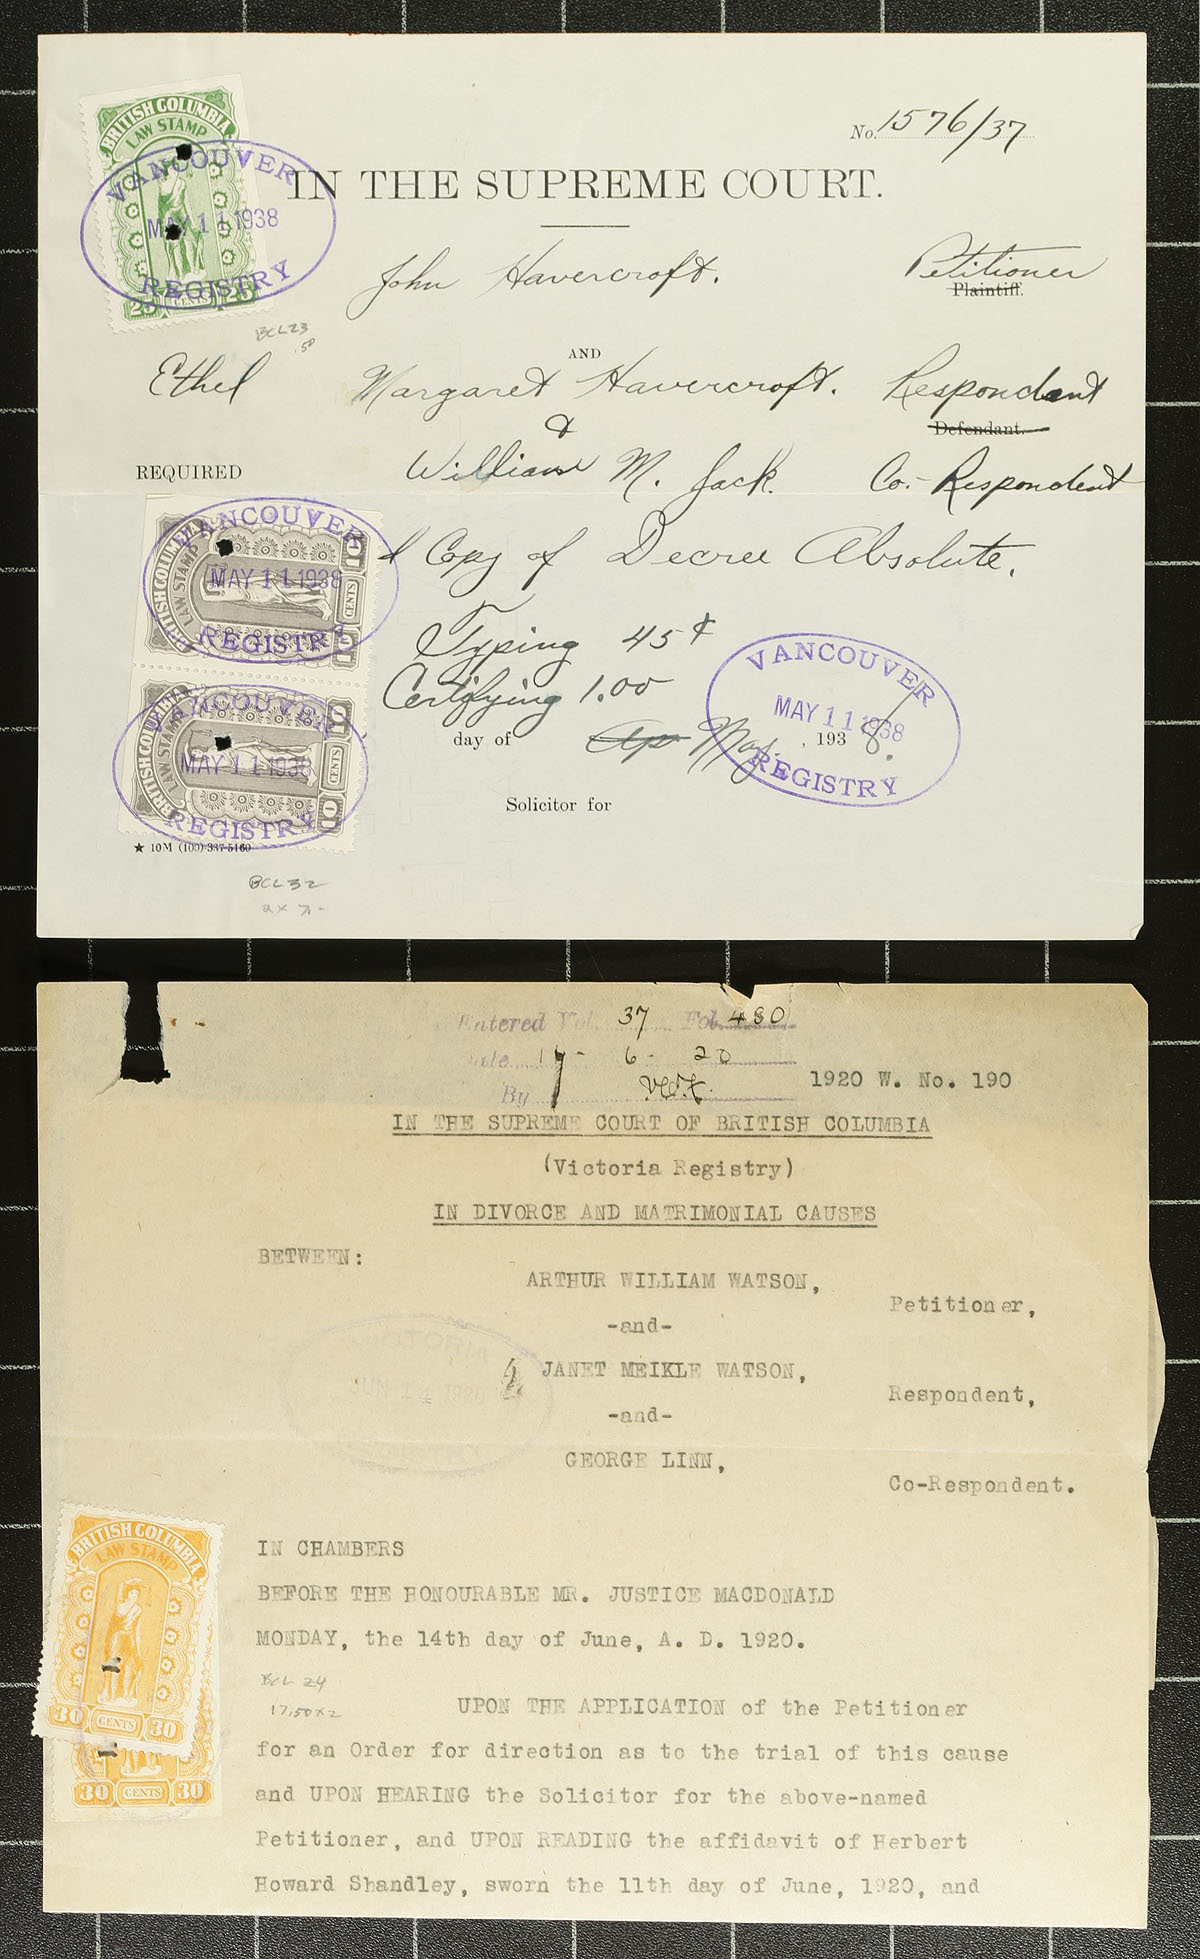 BRITISH COLUMBIA
LAW STAMP
25 CENTS 25
VANCOUVER
MAY 11 1938
REGISTRY
No. 1576/37
IN THE SUPREME COURT.
John Havercroft. Petitioner
Plaintiff.
BCL23
.50
AND
Ethel Margaret Havercroft. Respondent
&
Defendant.
REQUIRED William M. Jack. Co.-Respondent
BRITISH COLUMBIA
LAW STAMP
10 CENTS 10
VANCOUVER
MAY 11 1938
REGISTRY
1 Copy of Decree Absolute.
Typing 45¢
Certifying 1.00
BRITISH COLUMBIA
LAW STAMP
10 CENTS 10
VANCOUVER
MAY 11 1938
REGISTRY
day of Ap May. , 1938.
VANCOUVER
MAY 11 1938
REGISTRY
Solicitor for
★ 10M (100)-337-5160
BCL32
2x
Entered Vol. 37 Fol. 480
Date 17-6-20
By
1920 W. No. 190
IN THE SUPREME COURT OF BRITISH COLUMBIA
(Victoria Registry)
IN DIVORCE AND MATRIMONIAL CAUSES
BETWEEN:
ARTHUR WILLIAM WATSON,
Petitioner,
-and-
JANET MEIKLE WATSON,
Respondent,
-and-
GEORGE LINN,
Co-Respondent.
VICTORIA
JUN 14 1920
REGISTRY
BRITISH COLUMBIA
LAW STAMP
30 CENTS 30
30 CENTS 30
IN CHAMBERS
BEFORE THE HONOURABLE MR. JUSTICE MACDONALD
MONDAY, the 14th day of June, A. D. 1920.
BCL 24
17.50x2
UPON THE APPLICATION of the Petitioner
for an Order for direction as to the trial of this cause
and UPON HEARING the Solicitor for the above-named
Petitioner, and UPON READING the affidavit of Herbert
Howard Shandley, sworn the 11th day of June, 1920, and